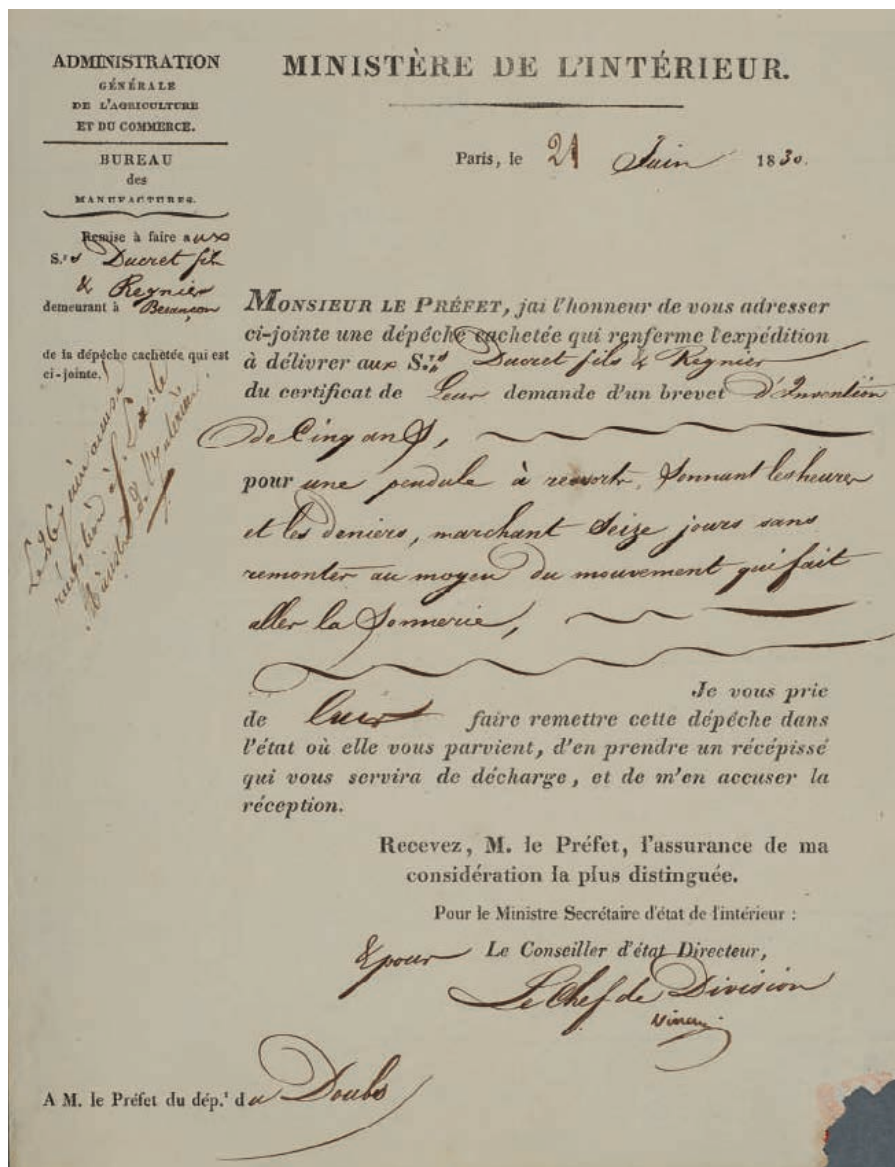 ADMINISTRATION
GÉNÉRALE
DE L'AGRICULTURE
ET DU COMMERCE.
BUREAU
des
MANUFACTURES.
Remise à faire aux
S.rs Ducret fils
& Regnier
demeurant à Besançon
de la dépêche cachetée qui est
ci-jointe.
Le 26 juin accusé
réception à S. Ex. le
Ministre de l'Intérieur
MINISTÈRE DE L'INTÉRIEUR.
Paris, le 21 Juin 1830.
MONSIEUR LE PRÉFET, jai l'honneur de vous adresser
ci-jointe une dépêche cachetée qui renferme l'expédition
à délivrer aux S.rs Ducret fils & Regnier
du certificat de Leur demande d'un brevet d'Invention
de Cinq ans,
pour une pendule à ressorts, Sonnant les heures
et les deniers, marchant Seize jours sans
remonter au moyen du mouvement qui fait
aller la Sonnerie,
Je vous prie
de leur faire remettre cette dépêche dans
l'état où elle vous parvient, d'en prendre un récépissé
qui vous servira de décharge, et de m'en accuser la
réception.
Recevez, M. le Préfet, l'assurance de ma
considération la plus distinguée.
Pour le Ministre Secrétaire d'état de l'intérieur :
& pour Le Conseiller d'état Directeur,
Le Chef de Division
A M. le Préfet du dép.t du Doubs